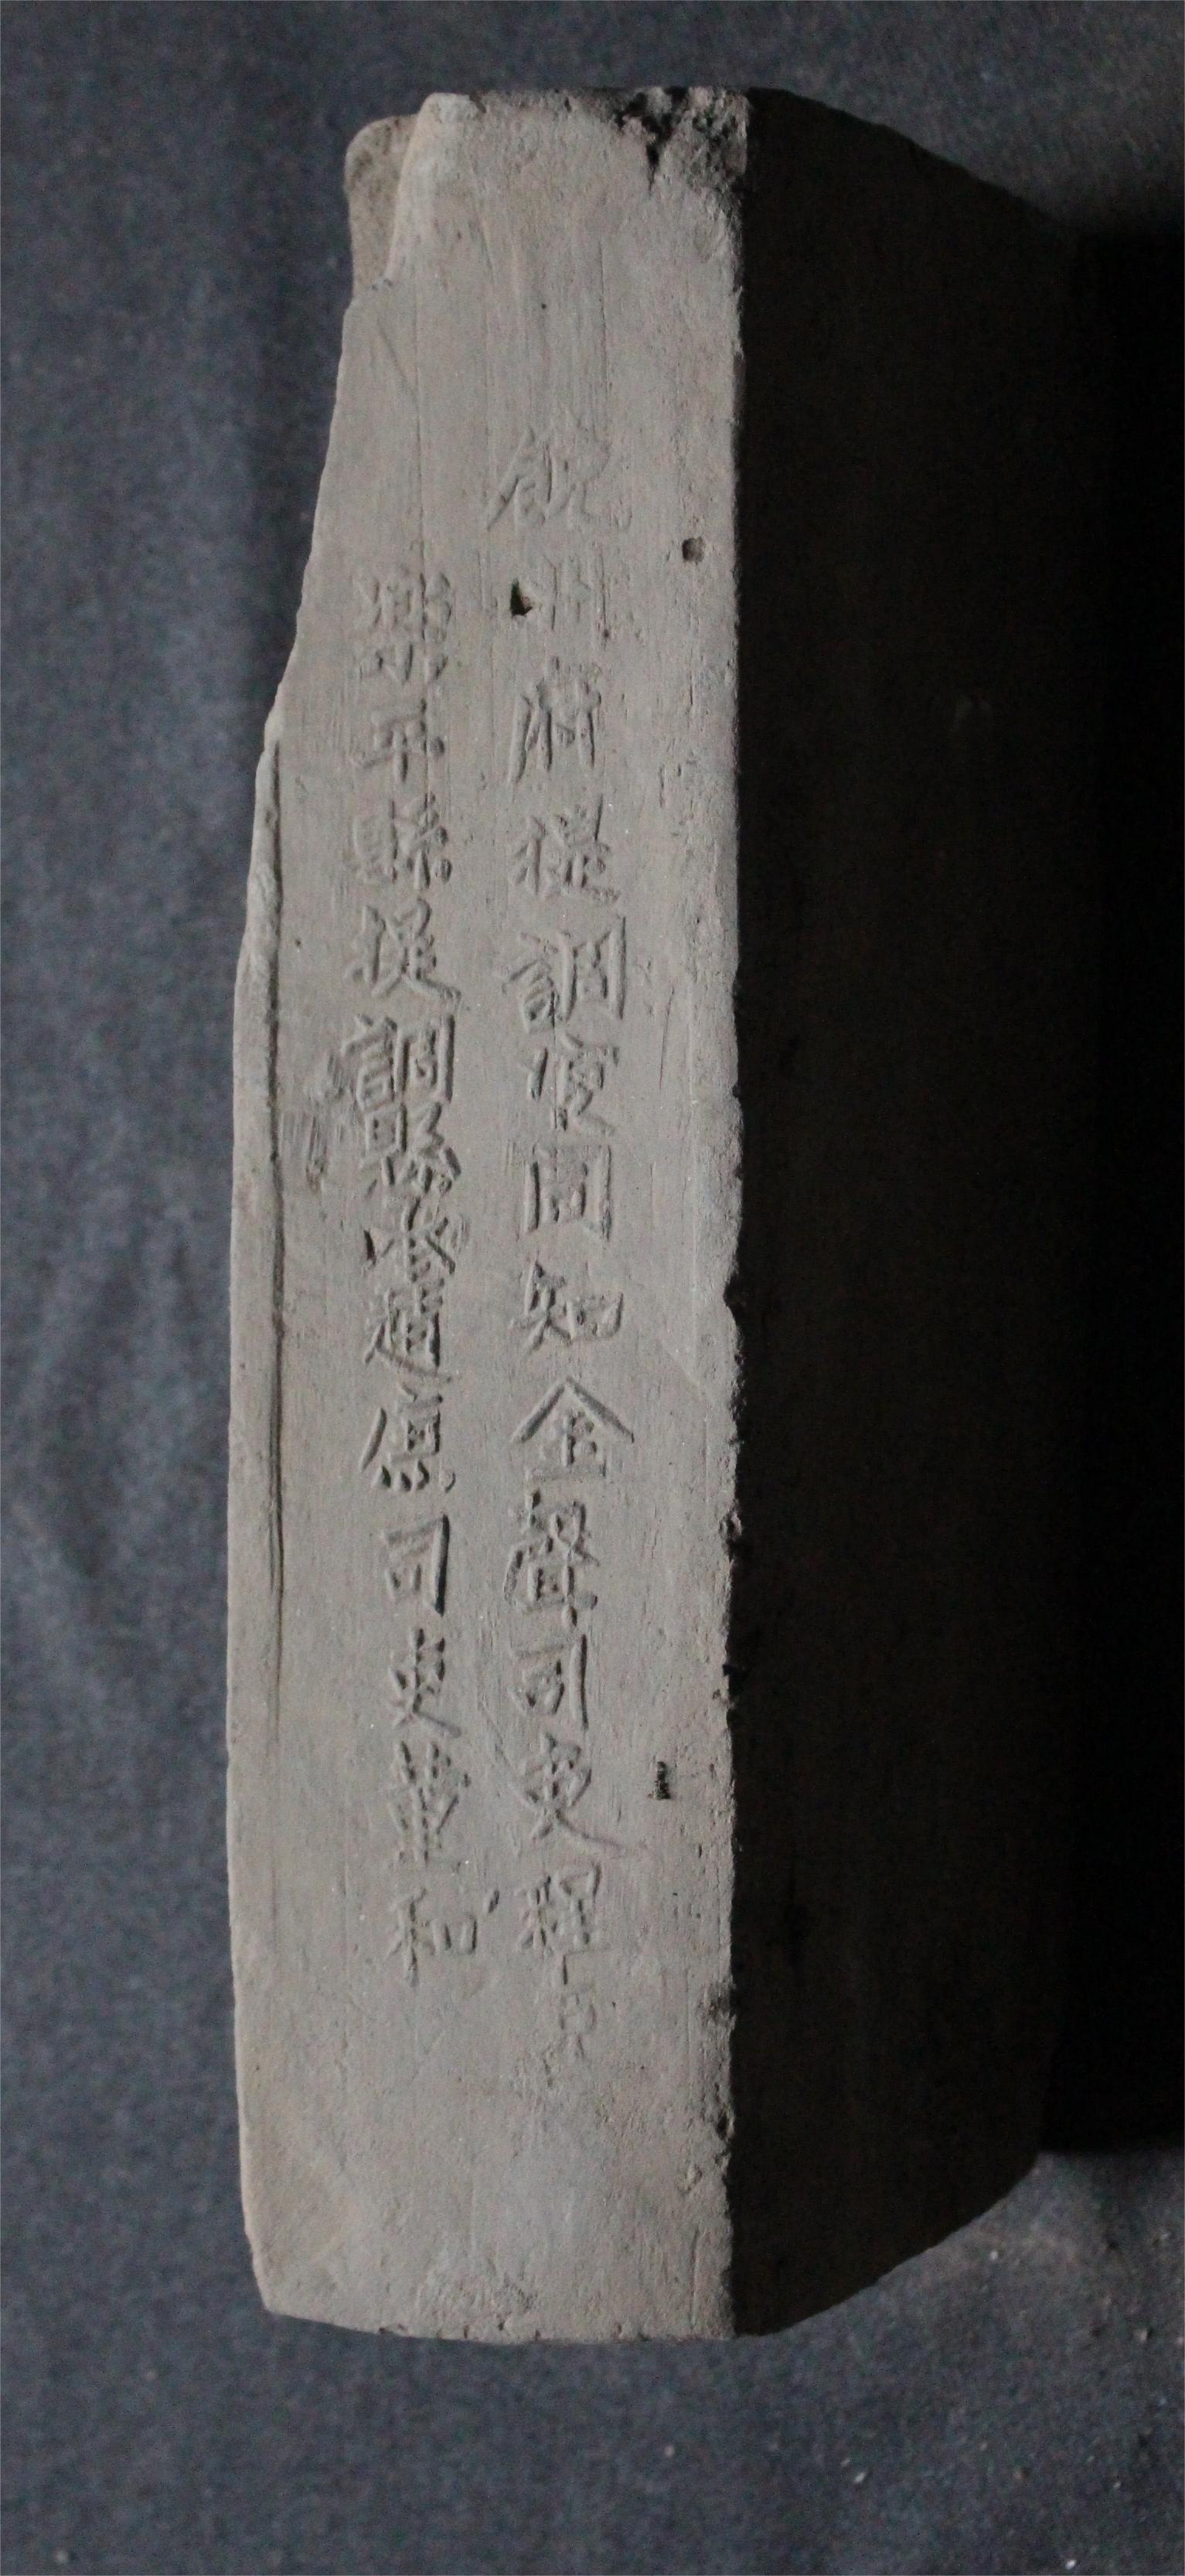 饒州府提調官同知金聲司吏程
樂平縣提調縣丞趙傎司吏董和